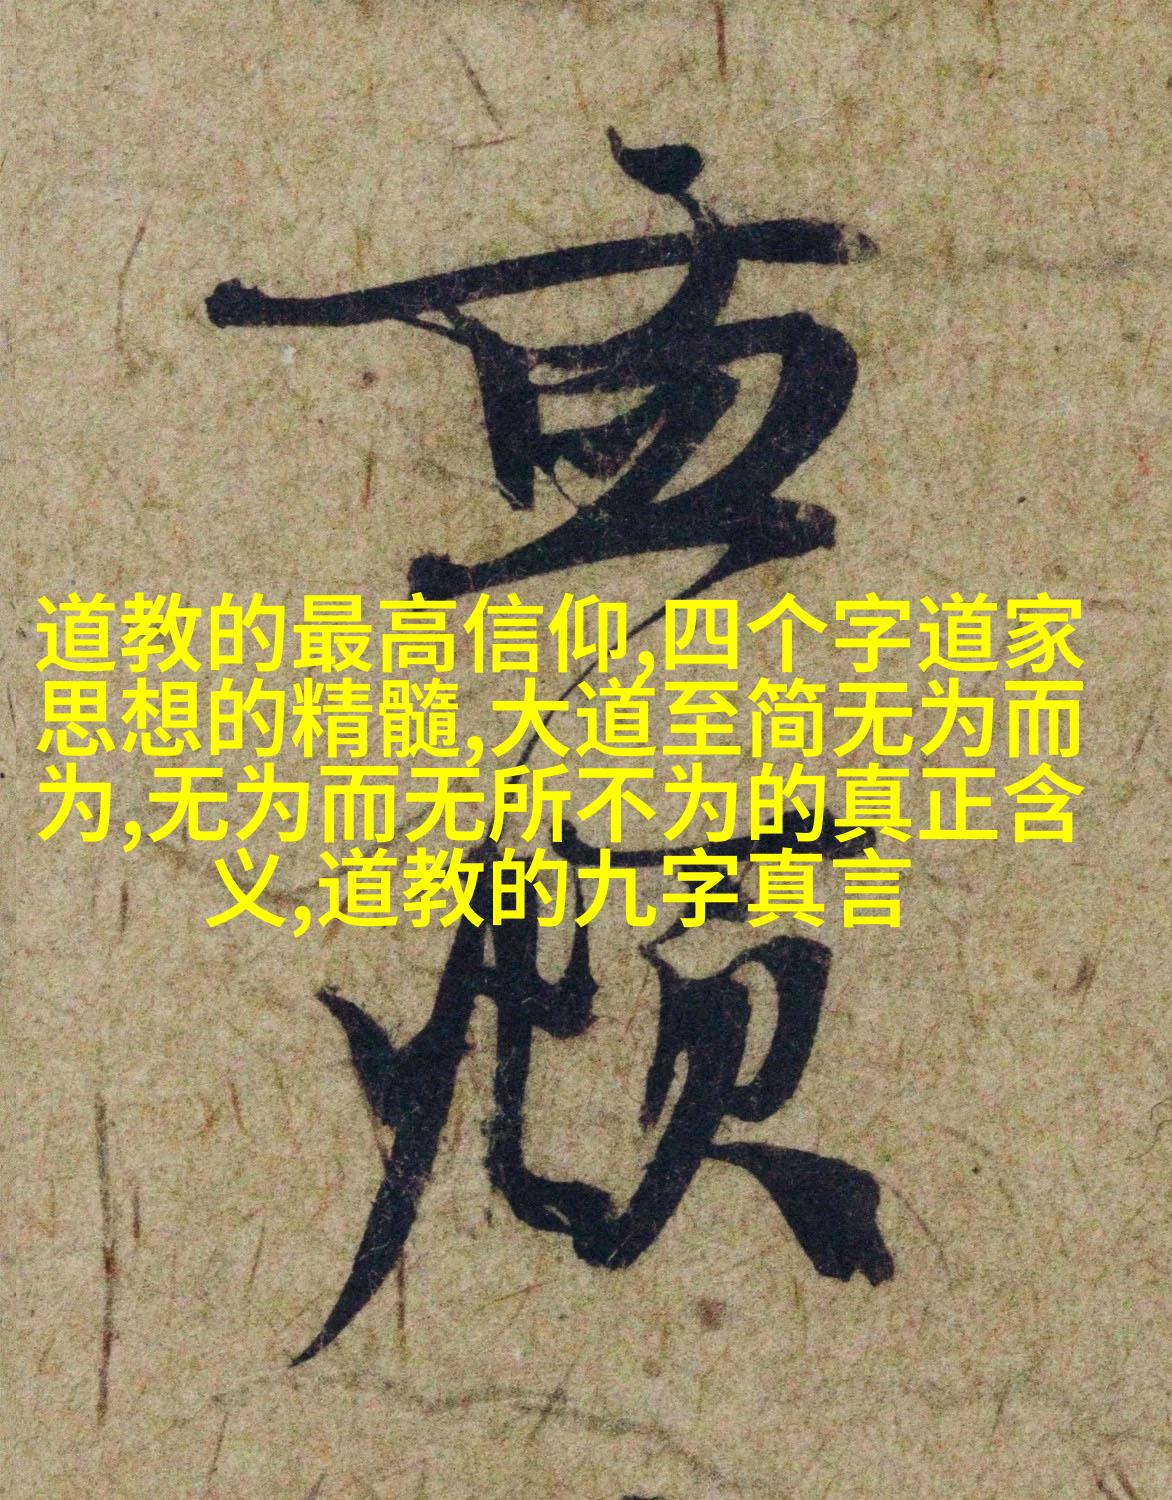 道教的最高信仰,四个字道家
思想的精髓,大道至简无为而
为,无为而无所不为的真正含
义,道教的九字真言